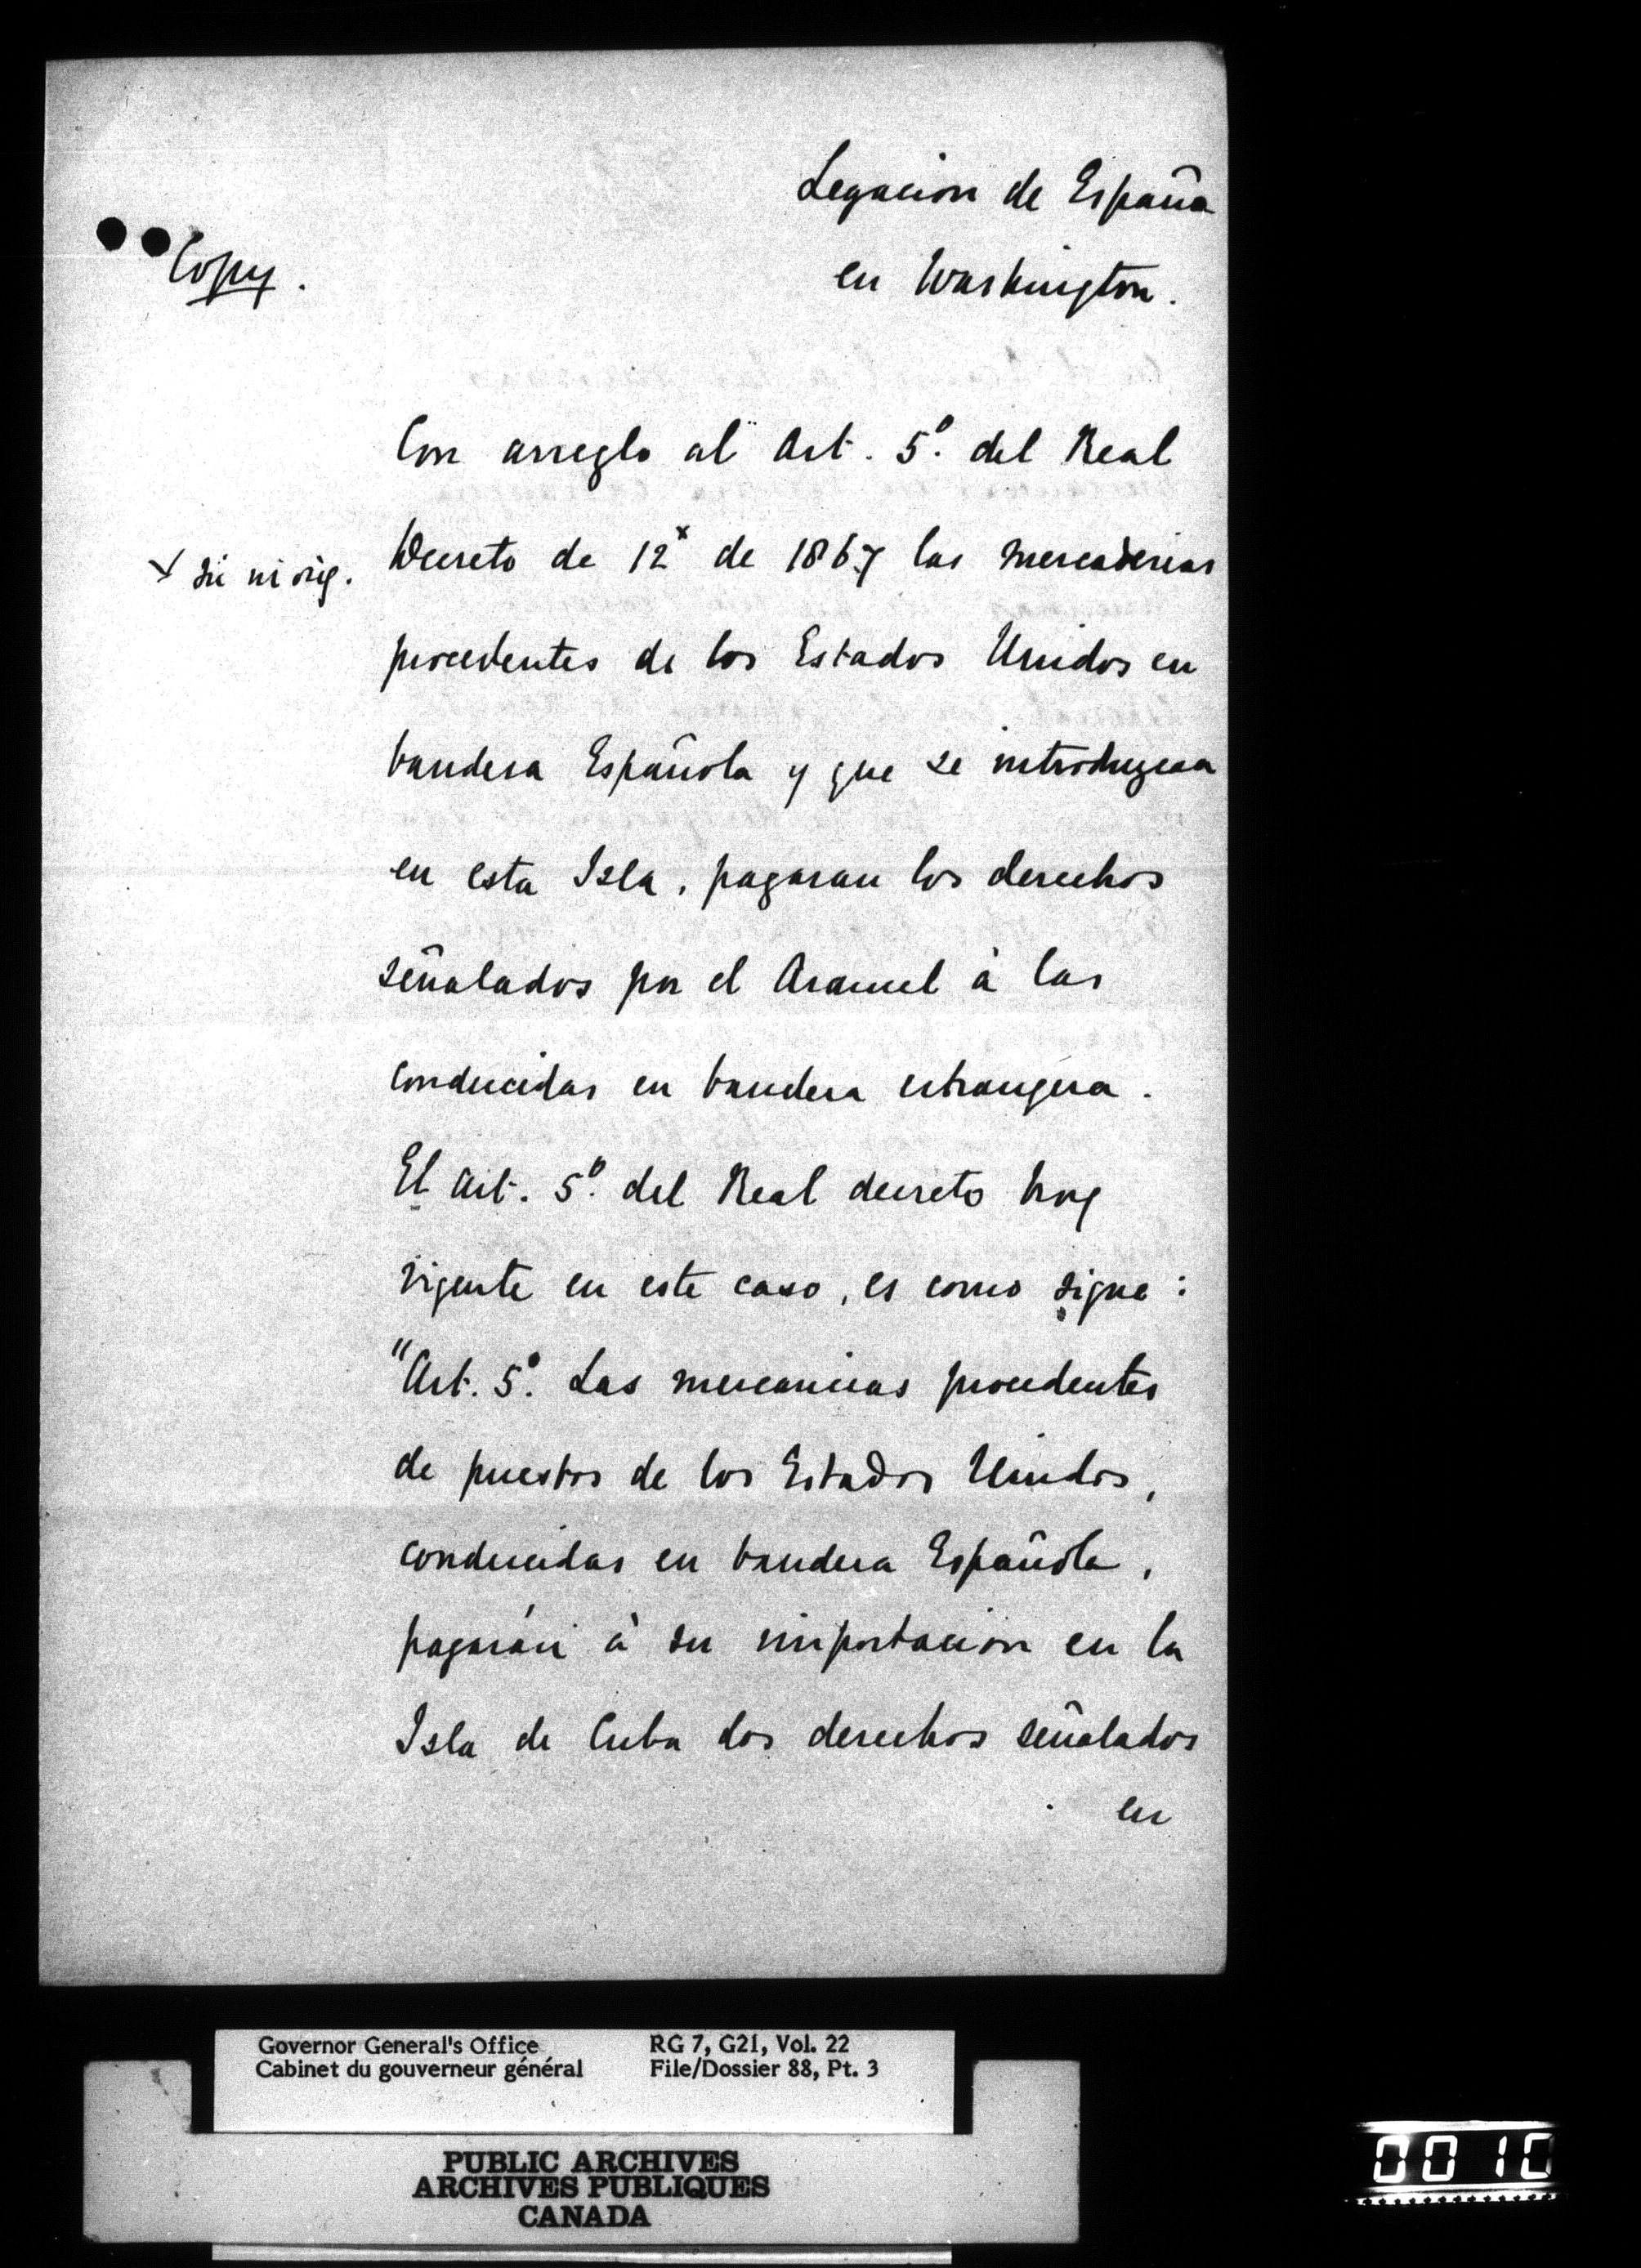 Legacion de España
en Washington.
Copy.
Con arreglo al Art. 5º. del Real
Decreto de 12x de 1867 las mercaderias
x sic in orig.
procedentes de los Estados Unidos en
bandera Española y que se introduzcan
en esta Isla, pagaran los derechos
señalados por el Arancel à las
conducidas en bandera estrangera.
El art. 5º. del Real decreto hoy
vigente en este caso, es como sigue:
"Art. 5º. Las mercancias procedentes
de puertos de los Estados Unidos,
conducidas en bandera Española,
pagarán à su importacion en la
Isla de Cuba los derechos señalados
en
Governor General's Office
Cabinet du gouverneur général
RG 7, G21, Vol. 22
File/Dossier 88, Pt. 3
PUBLIC ARCHIVES
ARCHIVES PUBLIQUES
CANADA
0010